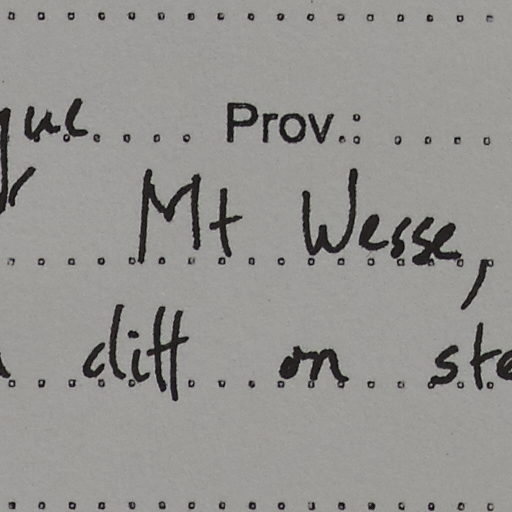 que Prov.:
r Mt Wesse,
cliff on ste